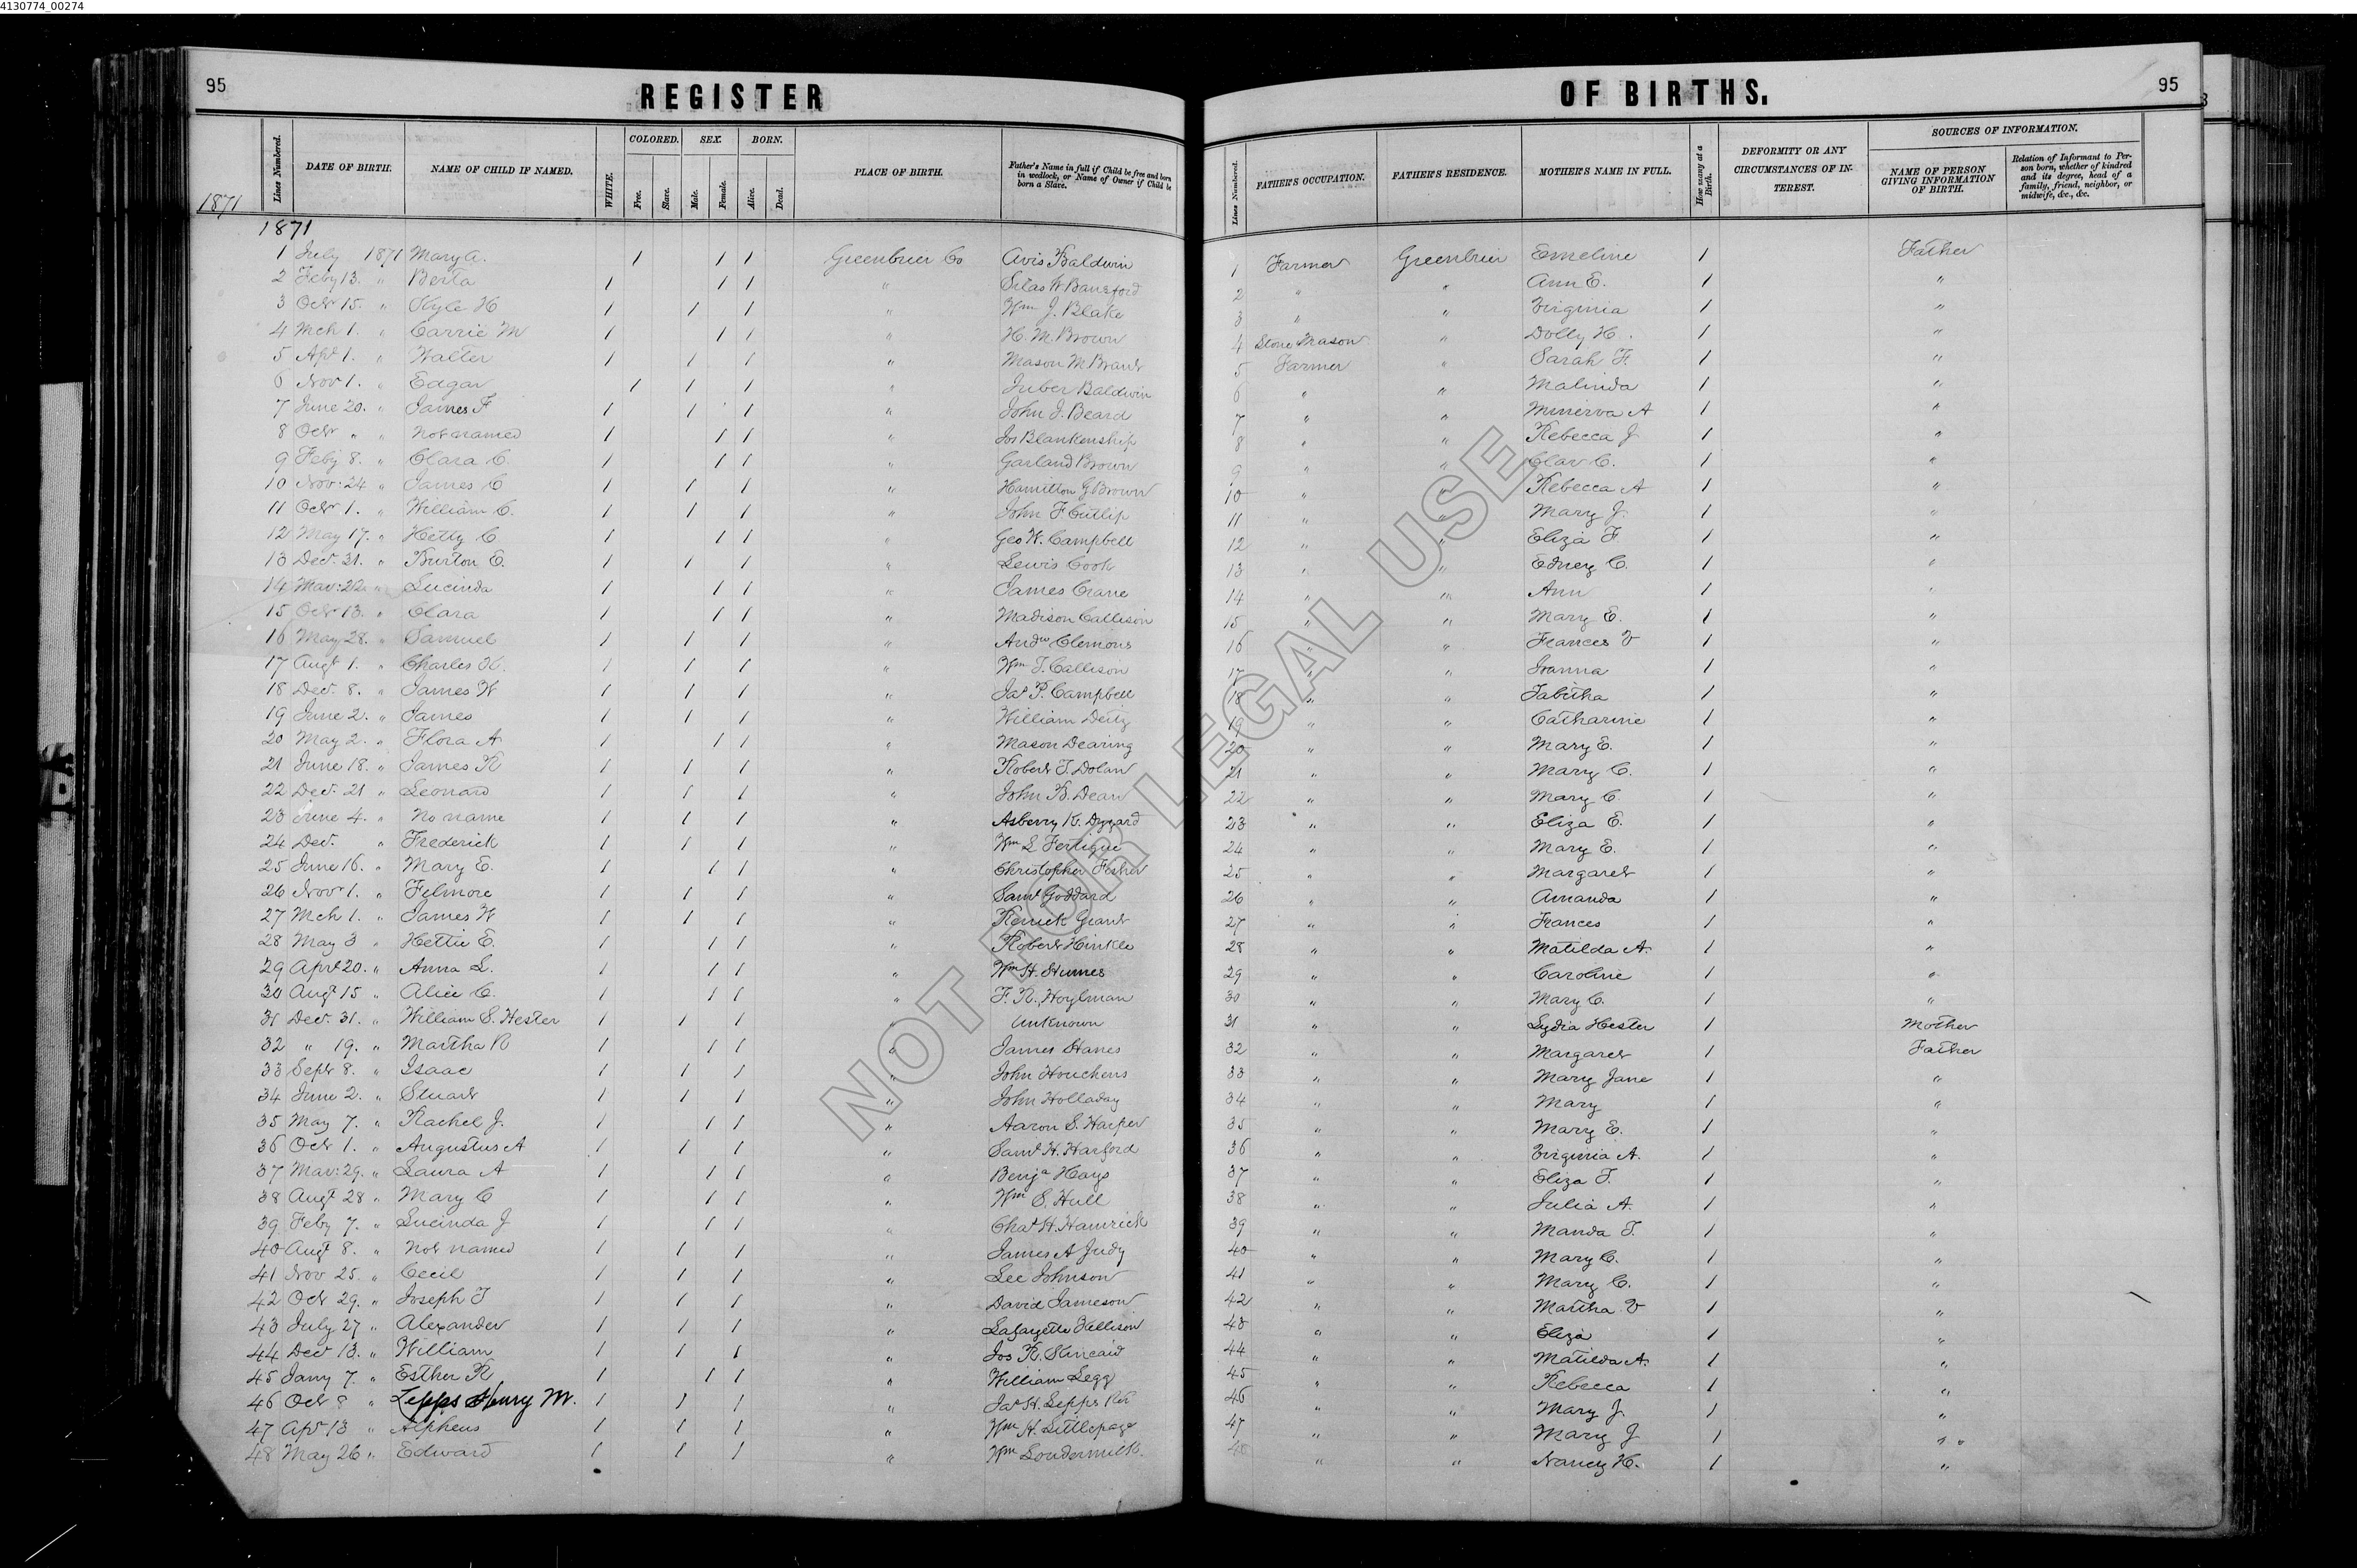 4130774_00274
95
REGISTER
OF BIRTHS.
95
Lines Numbered. DATE OF BIRTH. NAME OF CHILD IF NAMED. WHITE. COLORED. Free. Slave. SEX. Male. Female. BORN. Alive. Dead. PLACE OF BIRTH. Father's Name in full if Child be free and born in wedlock, or Name of Owner if Child be born a Slave.
Lines Numbered. FATHER'S OCCUPATION. FATHER'S RESIDENCE. MOTHER'S NAME IN FULL. How many at a Birth. DEFORMITY OR ANY CIRCUMSTANCES OF INTEREST. SOURCES OF INFORMATION. NAME OF PERSON GIVING INFORMATION OF BIRTH. Relation of Informant to Person born, whether of kindred and its degree, head of a family, friend, neighbor, or midwife, &c., &c.
1871
1871
1 July 1871 Mary A. 1 1 1 Greenbrier Co Avis Baldwin 1 Farmer Greenbrier Emeline 1 Father
2 Feby 13. " Berta 1 1 1 " Silas W 2 " " Ann E. 1 "
3 Octr 15. " Kyle H 1 1 1 " Wm J. Blake 3 " " Virginia 1 "
4 Mch 1. " Carrie M 1 1 1 " H. M. Brown 4 Stone Mason " Dolly H. 1 "
5 Apl 1. " Walter 1 1 1 " Mason M 5 Farmer " Sarah F. 1 "
6 Nov 1. " Edgar 1 1 1 " Juber Baldwin 6 " " Malinda 1 "
7 June 20. " James F 1 1 1 " John J. Beard 7 " " Minerva A 1 "
8 Octr " " Not named 1 1 1 " Jos Blankenship 8 " " Rebecca J 1 "
9 Feby 8. " Clara C. 1 1 1 " Garland Brown 9 " " C. 1 "
10 Nov: 24 " James C 1 1 1 " Hamilton G Brown 10 " " Rebecca A 1 "
11 Octr 1. " William C. 1 1 1 " John F Cutlip 11 " " Mary J. 1 "
12 May 17. " Hetty C 1 1 1 " Geo W. Campbell 12 " " Eliza F 1 "
13 Dec. 21. " Burton E. 1 1 1 " Lewis Cook 13 " " Edney C. 1 "
14 Mar: 22 " Lucinda 1 1 1 " James Crane 14 " " Ann 1 "
15 Octr 13. " Clara 1 1 1 " Madison Callison 15 " " Mary E. 1 "
16 May 28. " Samuel 1 1 1 " Andw Clemons 16 " " Frances V 1 "
17 Augt 1. " Charles K. 1 1 1 " Wm T. Callison 17 " " Joanna 1 "
18 Dec. 8. " James W 1 1 1 " Jas P. Campbell 18 " " Tabitha 1 "
19 June 2. " James 1 1 1 " William Deitz 19 " " Catharine 1 "
20 May 2. " Flora A 1 1 1 " Mason Dearing 20 " " Mary E. 1 "
21 June 18. " James R 1 1 1 " Robert T. Dolan 21 " " Mary C. 1 "
22 Dec. 21 " Leonard 1 1 1 " John B. Dean 22 " " Mary C 1 "
23 June 4. " No name 1 1 1 " Asberry K. 23 " " Eliza E. 1 "
24 Dec. " Frederick 1 1 1 " Wm L Fertigue 24 " " Mary E. 1 "
25 June 16. " Mary E. 1 1 1 " Christopher Fisher 25 " " Margaret 1 "
26 Novr 1. " Felmore 1 1 1 " Saml Goddard 26 " " Amanda 1 "
27 Mch 1. " James W 1 1 1 " Renick Grant 27 " " Frances 1 "
28 May 3 " Hettie E. 1 1 1 " Robert Hinkle 28 " " Matilda A. 1 "
29 Aprl 20. " Anna L. 1 1 1 " Wm H. Humes 29 " " Caroline 1 "
30 Augt 15 " Alice C. 1 1 1 " F. R. Hoylman 30 " " Mary C. 1 "
31 Dec. 31. " William S. Hester 1 1 1 " Unknown 31 " " Lydia Hester 1 Mother
32 " 19. " Martha R 1 1 1 " James Hanes 32 " " Margaret 1 Father
33 Sept 8. " Isaac 1 1 1 " John Houchens 33 " " Mary Jane 1 "
34 June 2. " Stuart 1 1 1 " John Holladay 34 " " Mary 1 "
35 May 7. " Rachel J. 1 1 1 " Aaron S. Harper 35 " " Mary E. 1 "
36 Oct 1. " Augustus A 1 1 1 " Saml H. Harford 36 " " Virginia A. 1 "
37 Mar: 29. " Laura A 1 1 1 " Benja Hays 37 " " Eliza T. 1 "
38 Augt 28 " Mary C 1 1 1 " Wm S. Hull 38 " " Julia A. 1 "
39 Feby 7. " Lucinda J 1 1 1 " Chas H. Hamrick 39 " " Manda T. 1 "
40 Augt 8. " Not named 1 1 1 " James A Judy 40 " " Mary C. 1 "
41 Nov 25. " Cecil 1 1 1 " Lee Johnson 41 " " Mary C. 1 "
42 Oct 29. " Joseph T 1 1 1 " David Jameson 42 " " Martha V 1 "
43 July 27 " Alexander 1 1 1 " Lafayette 43 " " Eliza 1 "
44 Dec 13. " William 1 1 1 " Jos R. Kincaid 44 " " Matilda A. 1 "
45 Jany 7. " Esther R 1 1 1 " William Legg 45 " " Rebecca 1 "
46 Oct 8 " Lepps Henry M. 1 1 1 " Jas H. Lepps 46 " " Mary J. 1 "
47 Apr 13 " Alpheus 1 1 1 " Wm H. Littlepage 47 " " Mary J 1 "
48 May 26 " Edward 1 1 1 " Wm Loudermilk. 48 " " Nancy H. 1 "
NOT FOR LEGAL USE